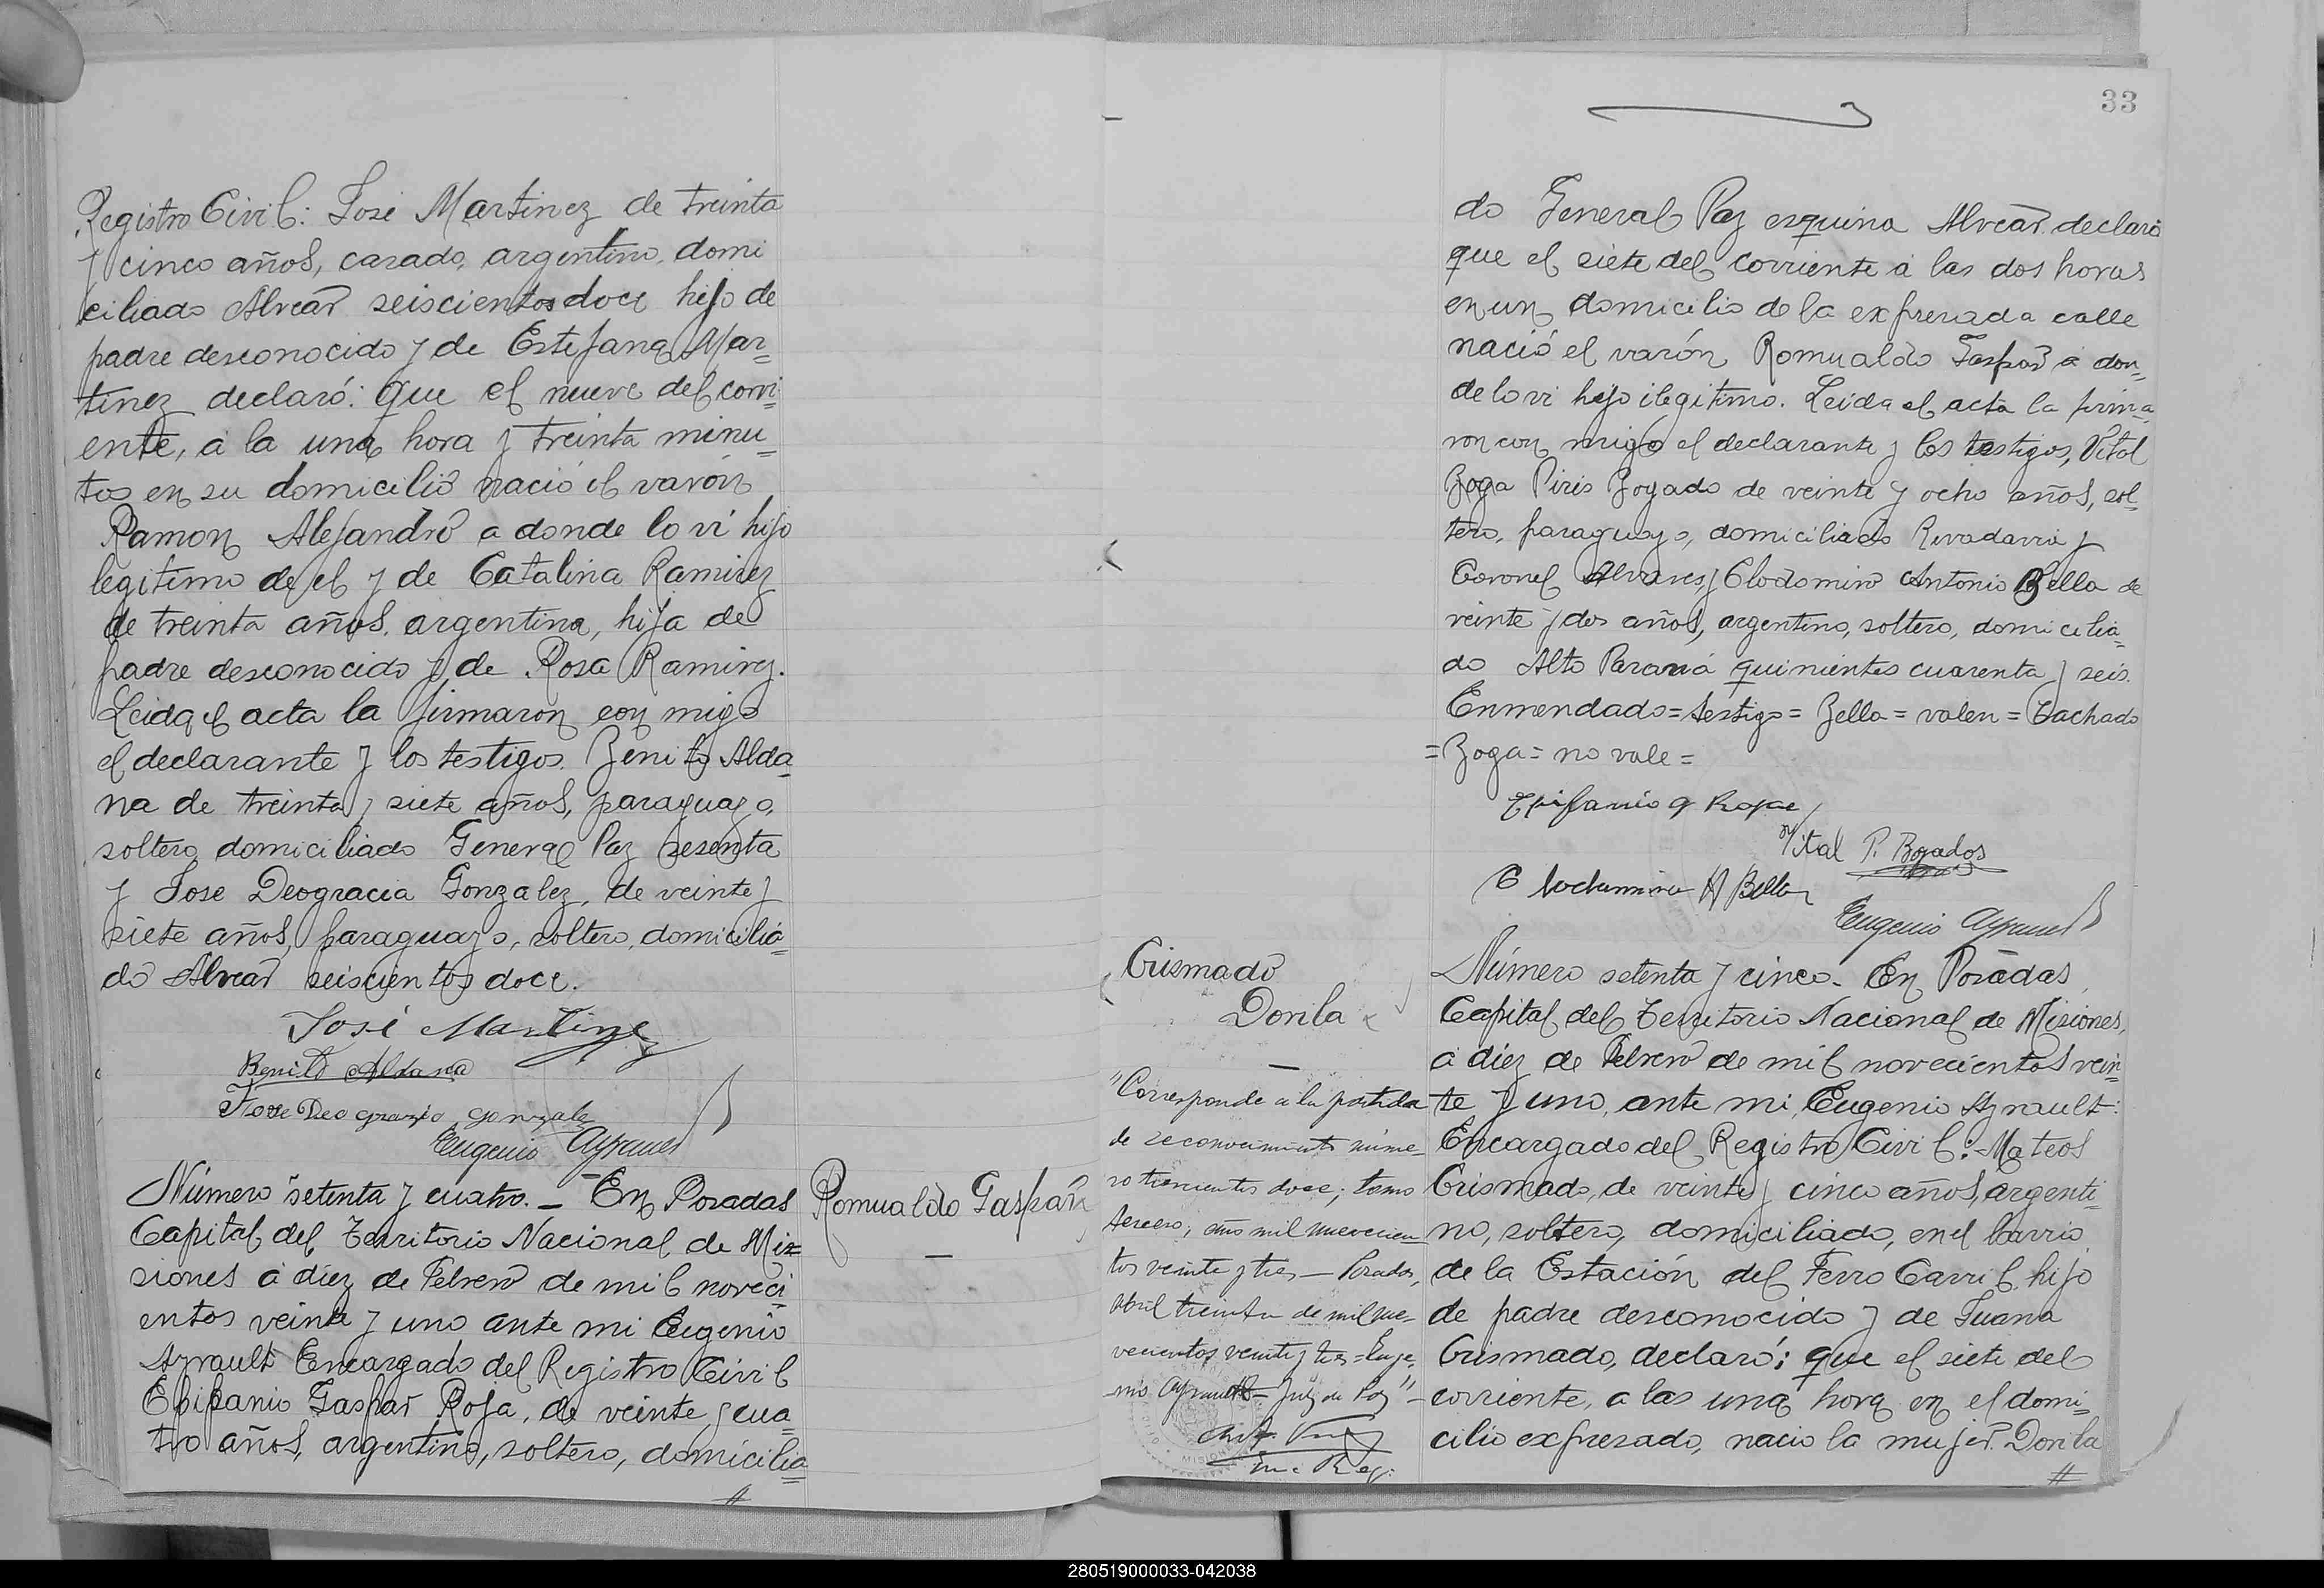 Registro Civil: José Martinez de treinta
y cinco años, casado, argentino, domi
ciliado Alvear seiscientos doce hijo de
padre desconocido y de Estefana Mar=
tinez declaró: que el nueve del corri=
ente, á la una hora y treinta minu=
tos en su domicilio nació el varón
Ramon Alejandro a donde lo vi hijo
legitimo de el y de Catalina Ramirez
de treinta años, argentina, hija de
padre desconocido y de Rosa Ramirez.
Leida el acta la firmaron con migo
el declarante y los testigos. Benito Alda=
na de treinta y siete años, paraguayo,
soltero domiciliado General Paz sesenta
y Jose Deogracia Gonzalez, de veinte y
siete años, paraguayo, soltero, domicilia=
do Alvear seiscientos doce.
José Martinez
Benito Aldana
Jose Deo grazio gonzale
Eugenio Ayrault
Número setenta y cuatro. _ En Posadas
Capital del Territorio Nacional de Mi=
siones á diez de Febrero de mil noveci=
entos veinte y uno ante mi Eugenio
Ayrault Encargado del Registro Civil
Epifanio Gaspar Roja, de veinte y cua=
tro años, argentino, soltero, domicilia=
Romualdo Gaspár
33
do General Paz esquina Alvear declaró
que el siete del corriente á las dos horas
en un domicilio de la expresada calle
nació el varón Romualdo Gaspar á don=
de lo vi hijo ilegitimo. Leida el acta la firma=
ron con migo el declarante y los testigos, Vital
Boga Piris Bogado de veinte y ocho años, sol=
tero, paraguayo, domiciliado Rivadavia y
Coronel Alvares, y Clodomiro Antonio Bella de
veinte y dos años, argentino, soltero, domicilia=
do Alto Paraná quinientos cuarenta y seis.
Enmendado = testigo = Bella = valen = Tachado
= Boga = no vale =
Epifanio g Roja
Vital P. Bogados
Clodomiro A Bella
Eugenio Ayrault
Grismado
Dorila
"Corresponde á la partida
de reconocimiento núme=
ro trescientos doce; tomo
tercero, año mil novecien=
tos veinte y tres — Posadas,
abril treinta de mil no=
vecientos veinte y tres = Euge=
nio Ayrault — Juez de Paz" —
Enc Reg.
Número setenta y cinco. En Posadas
Capital del Territorio Nacional de Misiones,
á diez de Febrero de mil novecientos vein=
te y uno, ante mi, Eugenio Ayrault:
Encargado del Registro Civil: Mateos
Grismado, de veinte y cinco años, argenti=
no, soltero, domiciliado, en el barrio
de la Estación del Ferro Carril, hijo
de padre desconocido y de Juana
Grismado, declaró; que el siete del
corriente, a las una hora en el domi=
cilio expresado, nacio la mujer Dorila
280519000033-042038